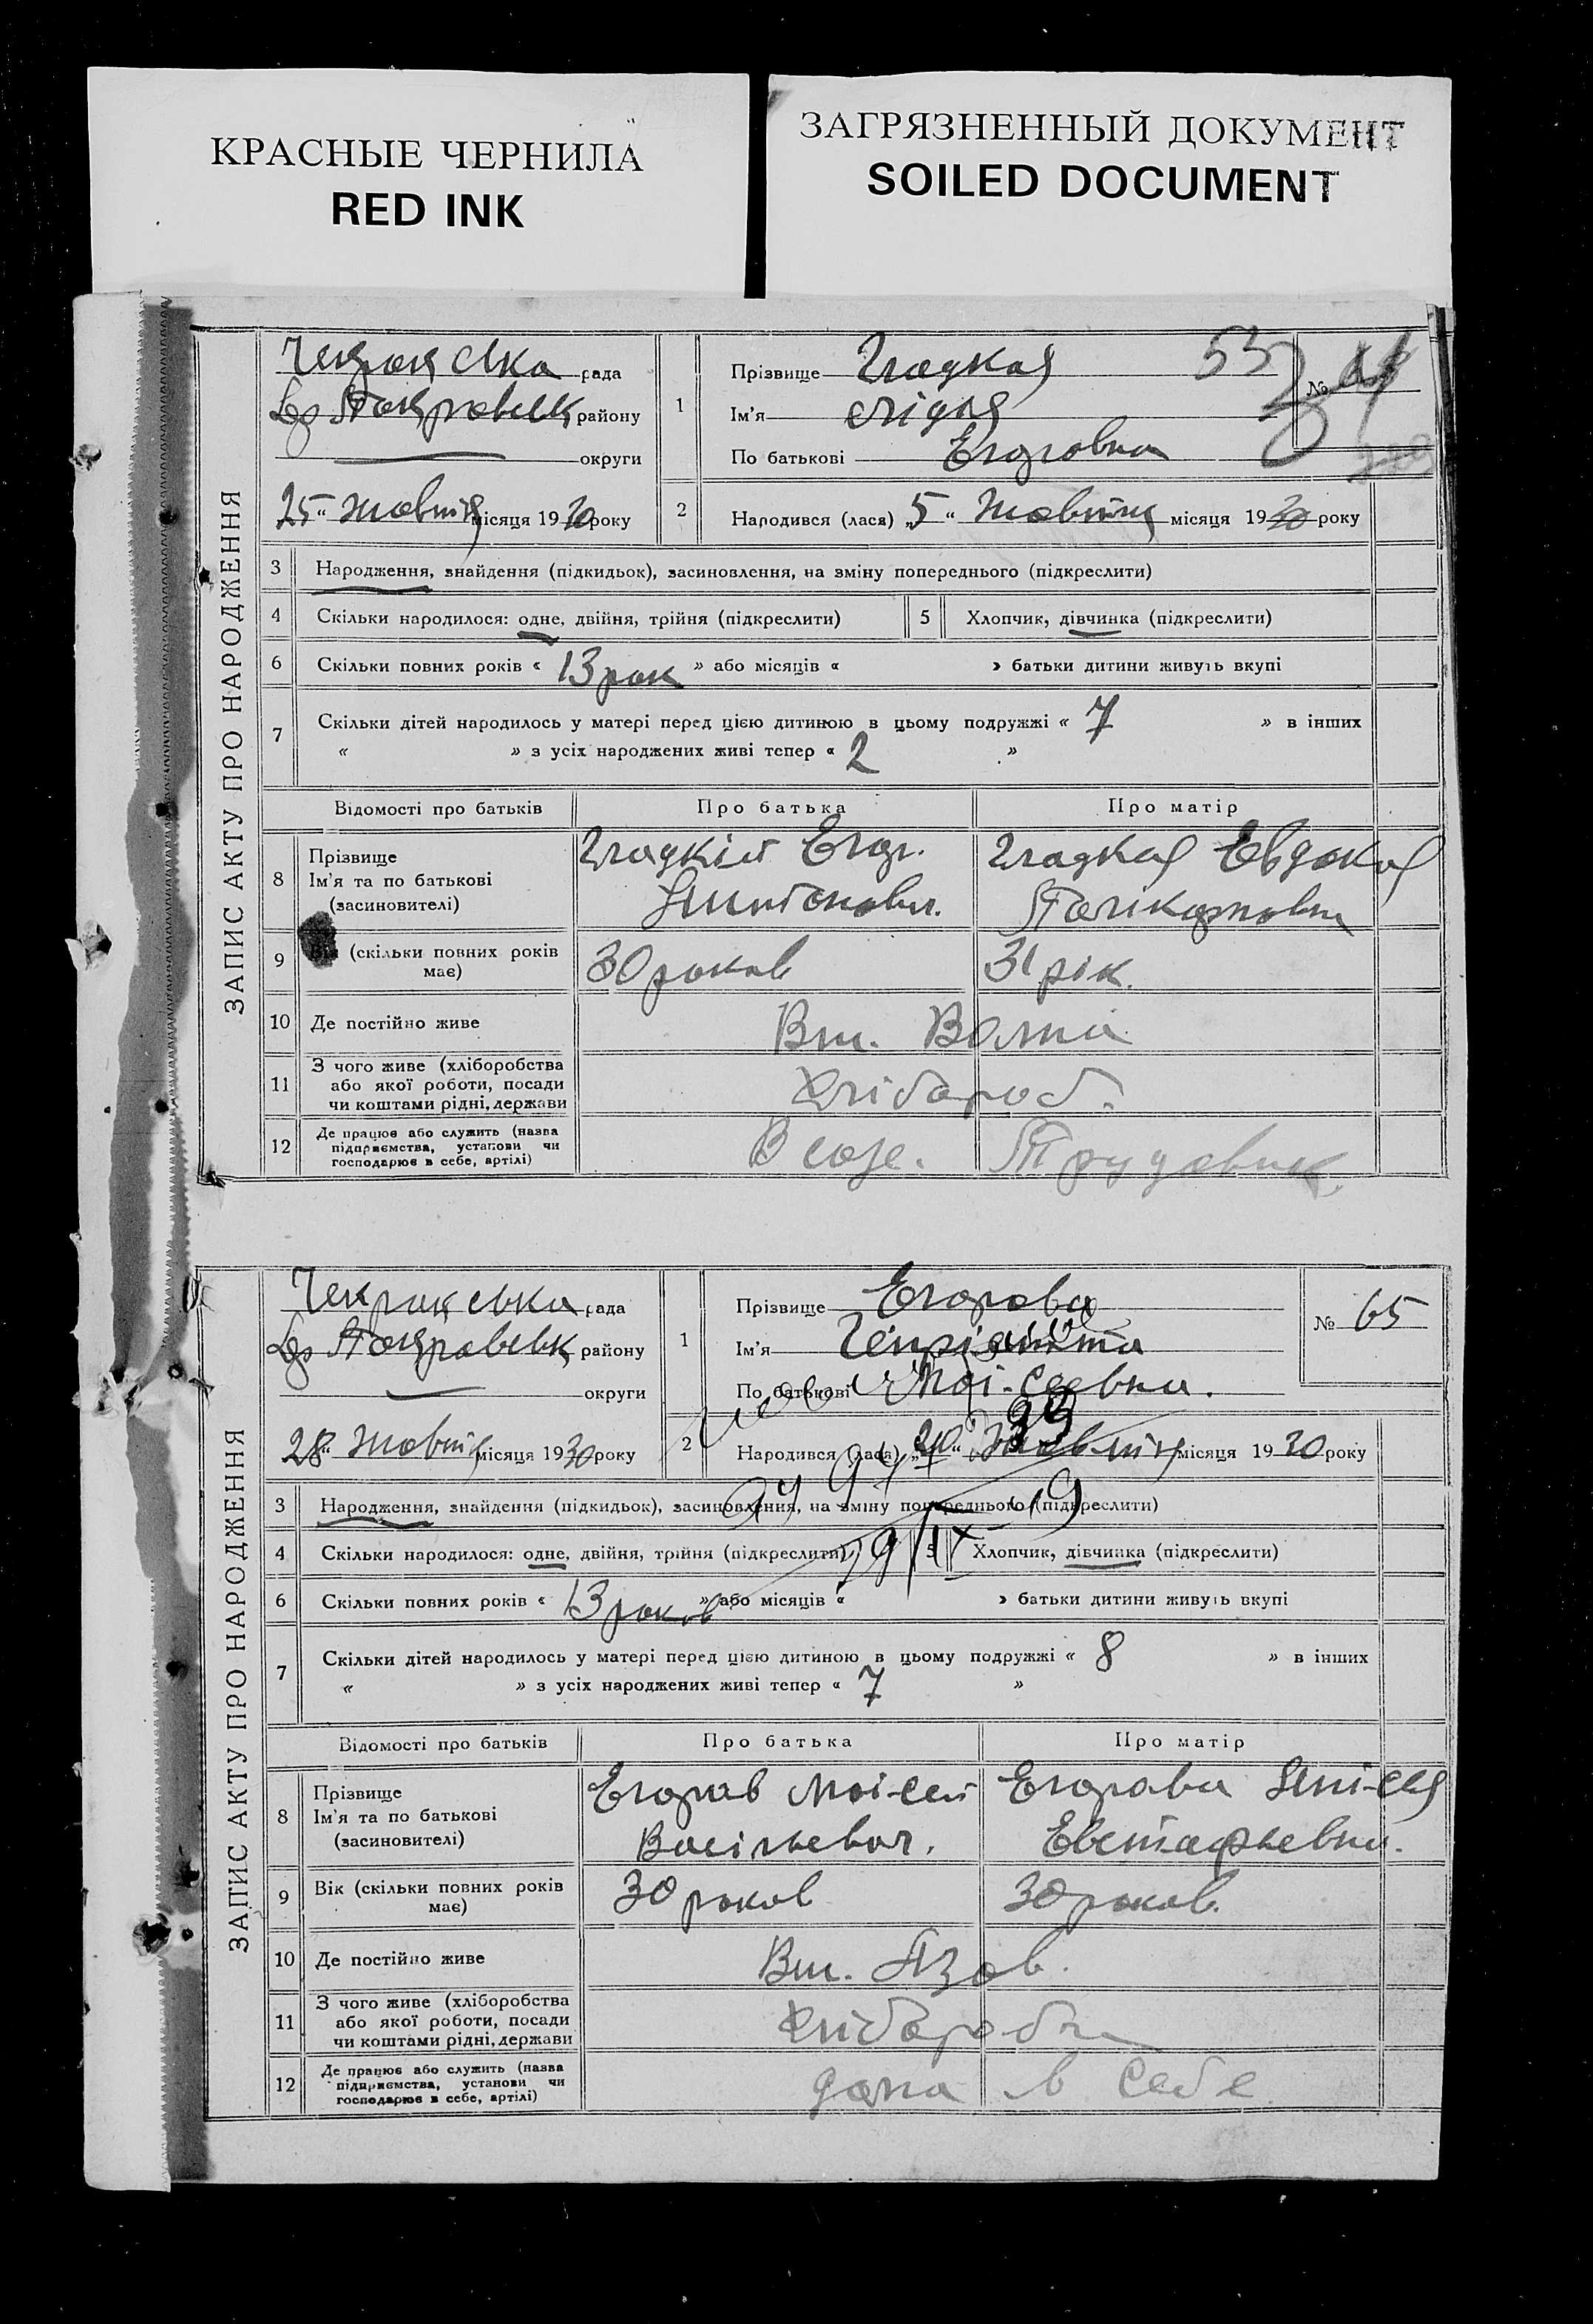 КРАСНЫЕ ЧЕРНИЛА
RED INK
ЗАГРЯЗНЕННЫЙ ДОКУМЕНТ
SOILED DOCUMENT
ЗАПИС АКТУ ПРО НАРОДЖЕННЯ
рада
району
округи
25 " Жовтня місяця 1930 року
1
Прізвище Гладкая
53
№
Ім'я Лідия
По батькові Егоровна
2
Народився (лася) „5 " Жовтня місяця 1930 року
3 Народження, знайдення (підкидьок), засиновлення, на зміну попереднього (підкреслити)
4 Скільки народилося: одне, двійня, трійня (підкреслити) 5 Хлопчик, дівчинка (підкреслити)
6 Скільки повних років « 13 рок » або місяців « » батьки дитини живуть вкупі
7 Скільки дітей народилось у матері перед цією дитиною в цьому подружжі « 7 » в інших
« » з усіх народжених живі тепер « 2 »
Відомості про батьків Про батька Про матір
8 Прізвище
Ім'я та по батькові
(засиновителі)
Гладкій Егор.
Гладкая Евдокия
Полікарповна
9 (скільки повних років має) 30 роков 31 рік.
10 Де постійно живе Вш. Воля
11 З чого живе (хліборобства
або якої роботи, посади
чи коштами рідні, держави
Хлібороб.
12 Де працює або служить (назва
підприємства, установи чи
господарює в себе, артілі)
В созе. Трудовик.
ЗАПИС АКТУ ПРО НАРОДЖЕННЯ
рада
району
округи
28 " Жовтня місяця 1930 року
1
Прізвище Егорова
№ 65
Ім'я
По батькові Моі-сеевна.
2
Народився (лася) Жовтня місяця 1930 року
3 Народження, знайдення (підкидьок), засиновлення, на зміну попереднього (підкреслити)
4 Скільки народилося: одне, двійня, трійня (підкреслити) 5 Хлопчик, дівчинка (підкреслити)
6 Скільки повних років « 13 роков » або місяців « » батьки дитини живуть вкупі
7 Скільки дітей народилось у матері перед цією дитиною в цьому подружжі « 8 » в інших
« » з усіх народжених живі тепер « 7 »
Відомості про батьків Про батька Про матір
8 Прізвище
Ім'я та по батькові
(засиновителі)
Егоров Моі-сей
Васільевич.
Егорова
Евстафьевна.
9 Вік (скільки повних років має) 30 роков 30 роков.
10 Де постійно живе Вш. Азов.
11 З чого живе (хліборобства
або якої роботи, посади
чи коштами рідні, держави
12 Де працює або служить (назва
підприємства, установи чи
господарює в себе, артілі)
дома в себе